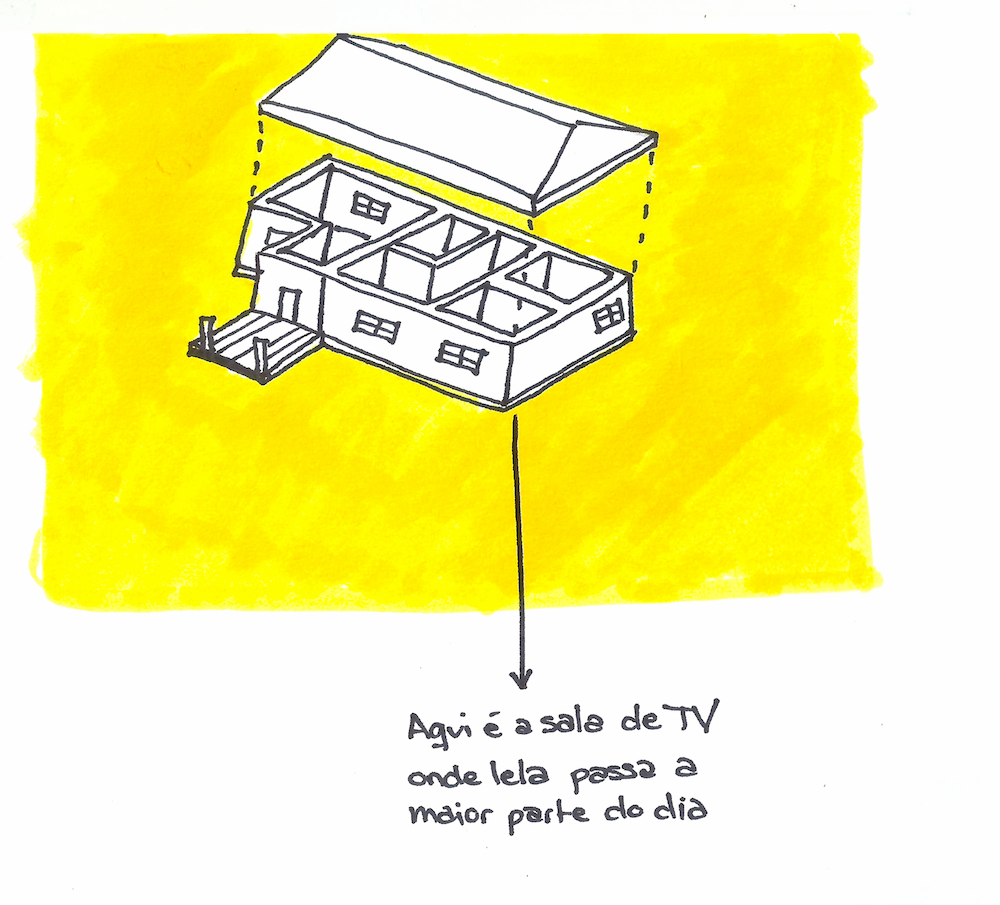 Aqui é a sala de TV
onde lela passa a
maior parte do dia